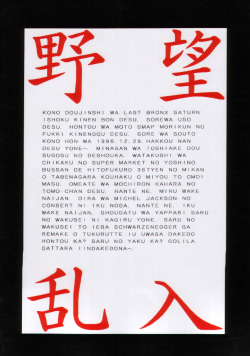 野望
KONO DOUJINSHI WA LAST BRONX SATURN
ISHOKU KINEN BON DESU. SOREWA USO
DESU. HONTOU WA MOTO SMAP MORIKUN NO
FUKKI KINENGOU DESU. SORE WA SOUTO
KONO HON WA 1996.12.29.HAKKOU NAN
DESU YONE~. MINASAN WA TOSHIAKE DOU
SUGOSU NO DESHOUKA. WATAKUSHI WA
CHIKAKU NO SUPER MARKET NO YOSHINO
BUSSAN DE HITOFUKURO 385YEN NO MIKAN
O TABENAGARA KOUHAKU O MIYOU TO OMOI
MASU. OMEATE WA MOCHIRON KAHARA NO
TOMO-CHAN DESU. NANTE NE. MIRU WAKE
NAIJAN. DIKA WA MICHEL JACKSON NO
CONCERT NI IKU NOSA. NANTE NE. IKU
WAKE NAIJAN. SHOUGATU WA YAPPARI SARU
NO WAKUSEI NI KAGIRU YONE. SARU NO
WAKUSEI TO IEBA SCHWARZENEGGER GA
REMAKE O TUKURUTTE IU UWASA DAKEDO
HONTOU KA? SARU NO YAKU KA? GOLILA
DATTARA IINDAKEDONA~.
乱入